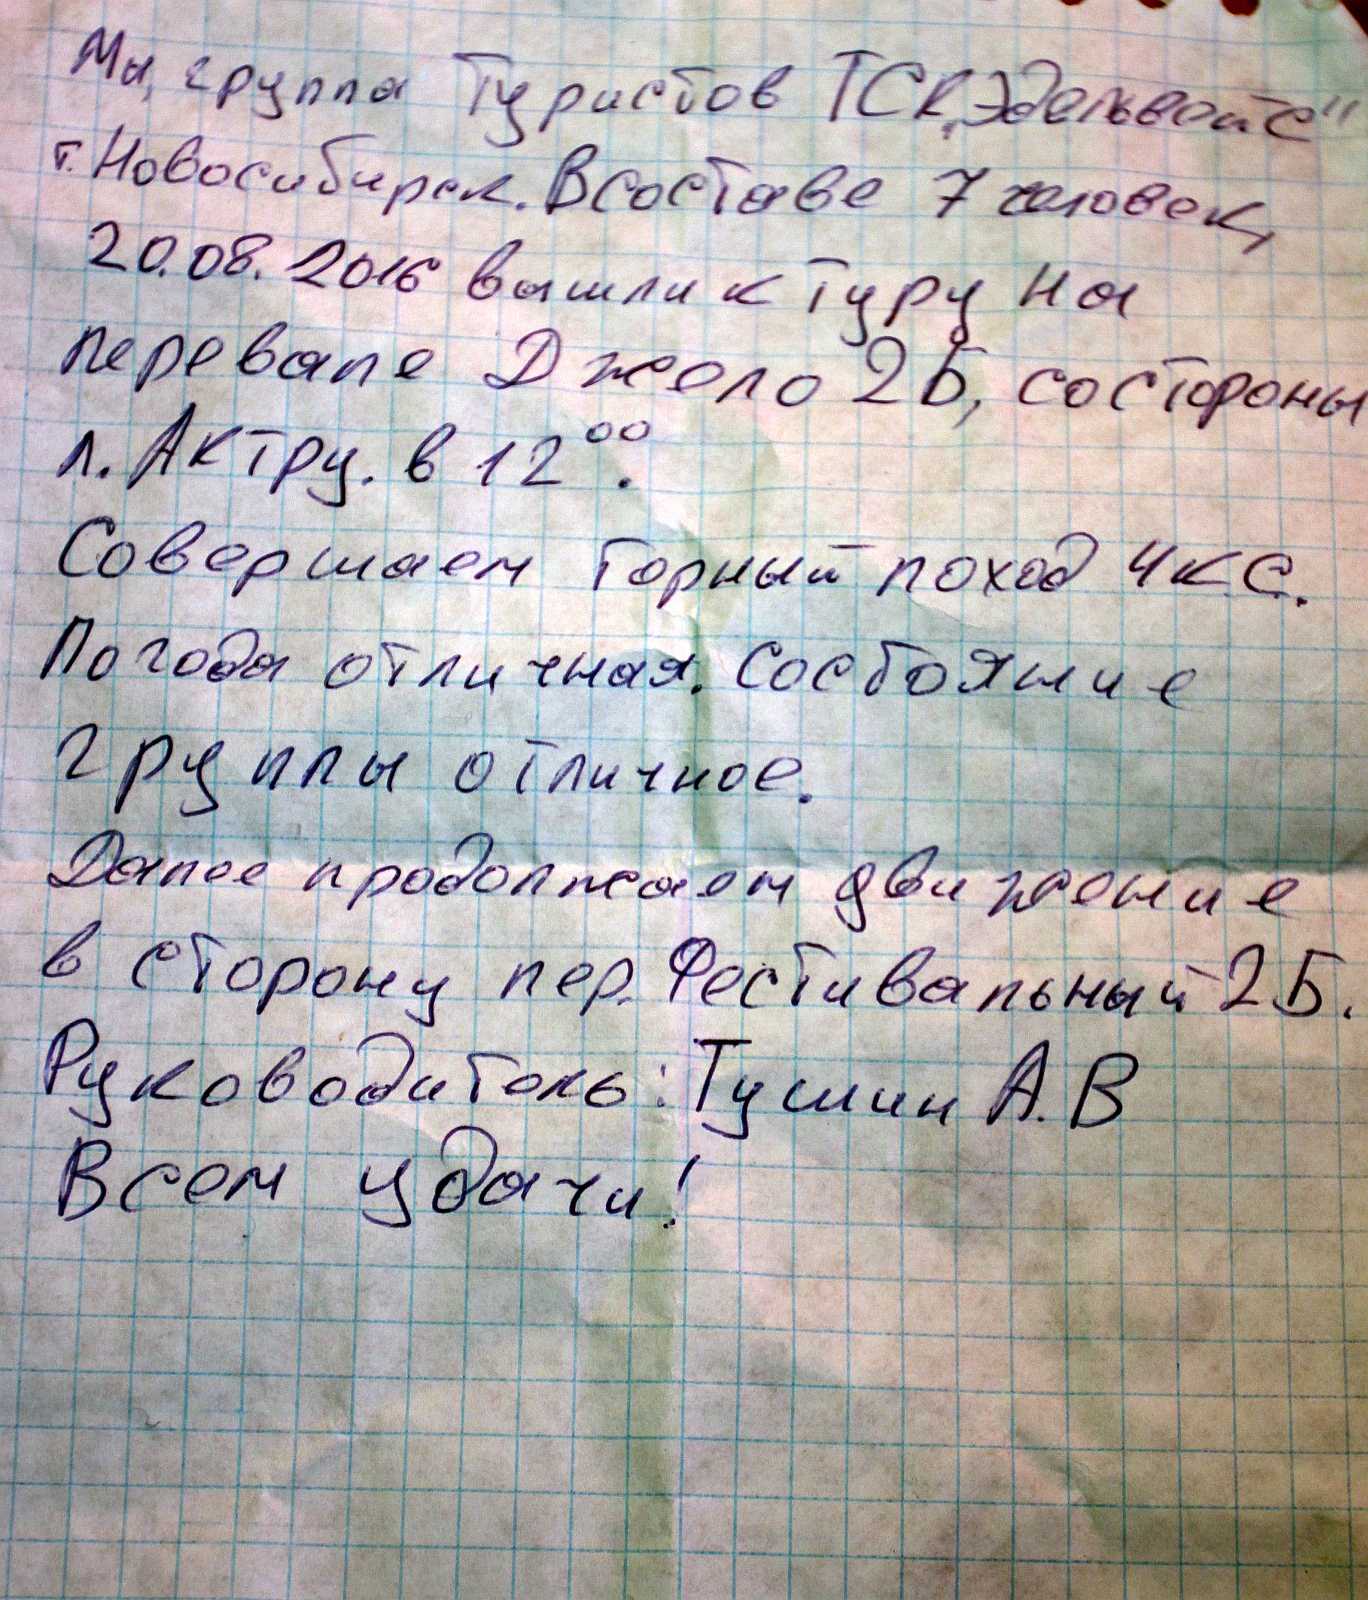 Мы, группа туристов ТСК „Эдельвейс"
г. Новосибирск. В составе 7 человек,
20.08.2016 вышли к туру на
перевале Джело 2Б, со стороны
л. Актру. в 12⁰⁰.
Совершаем горный поход 4 к.с.
Погода отличная. Состояние
группы отличное.
Далее продолжаем движение
в сторону пер. Фестивальный 2Б.
Руководитель: Тушин А.В
Всем удачи!